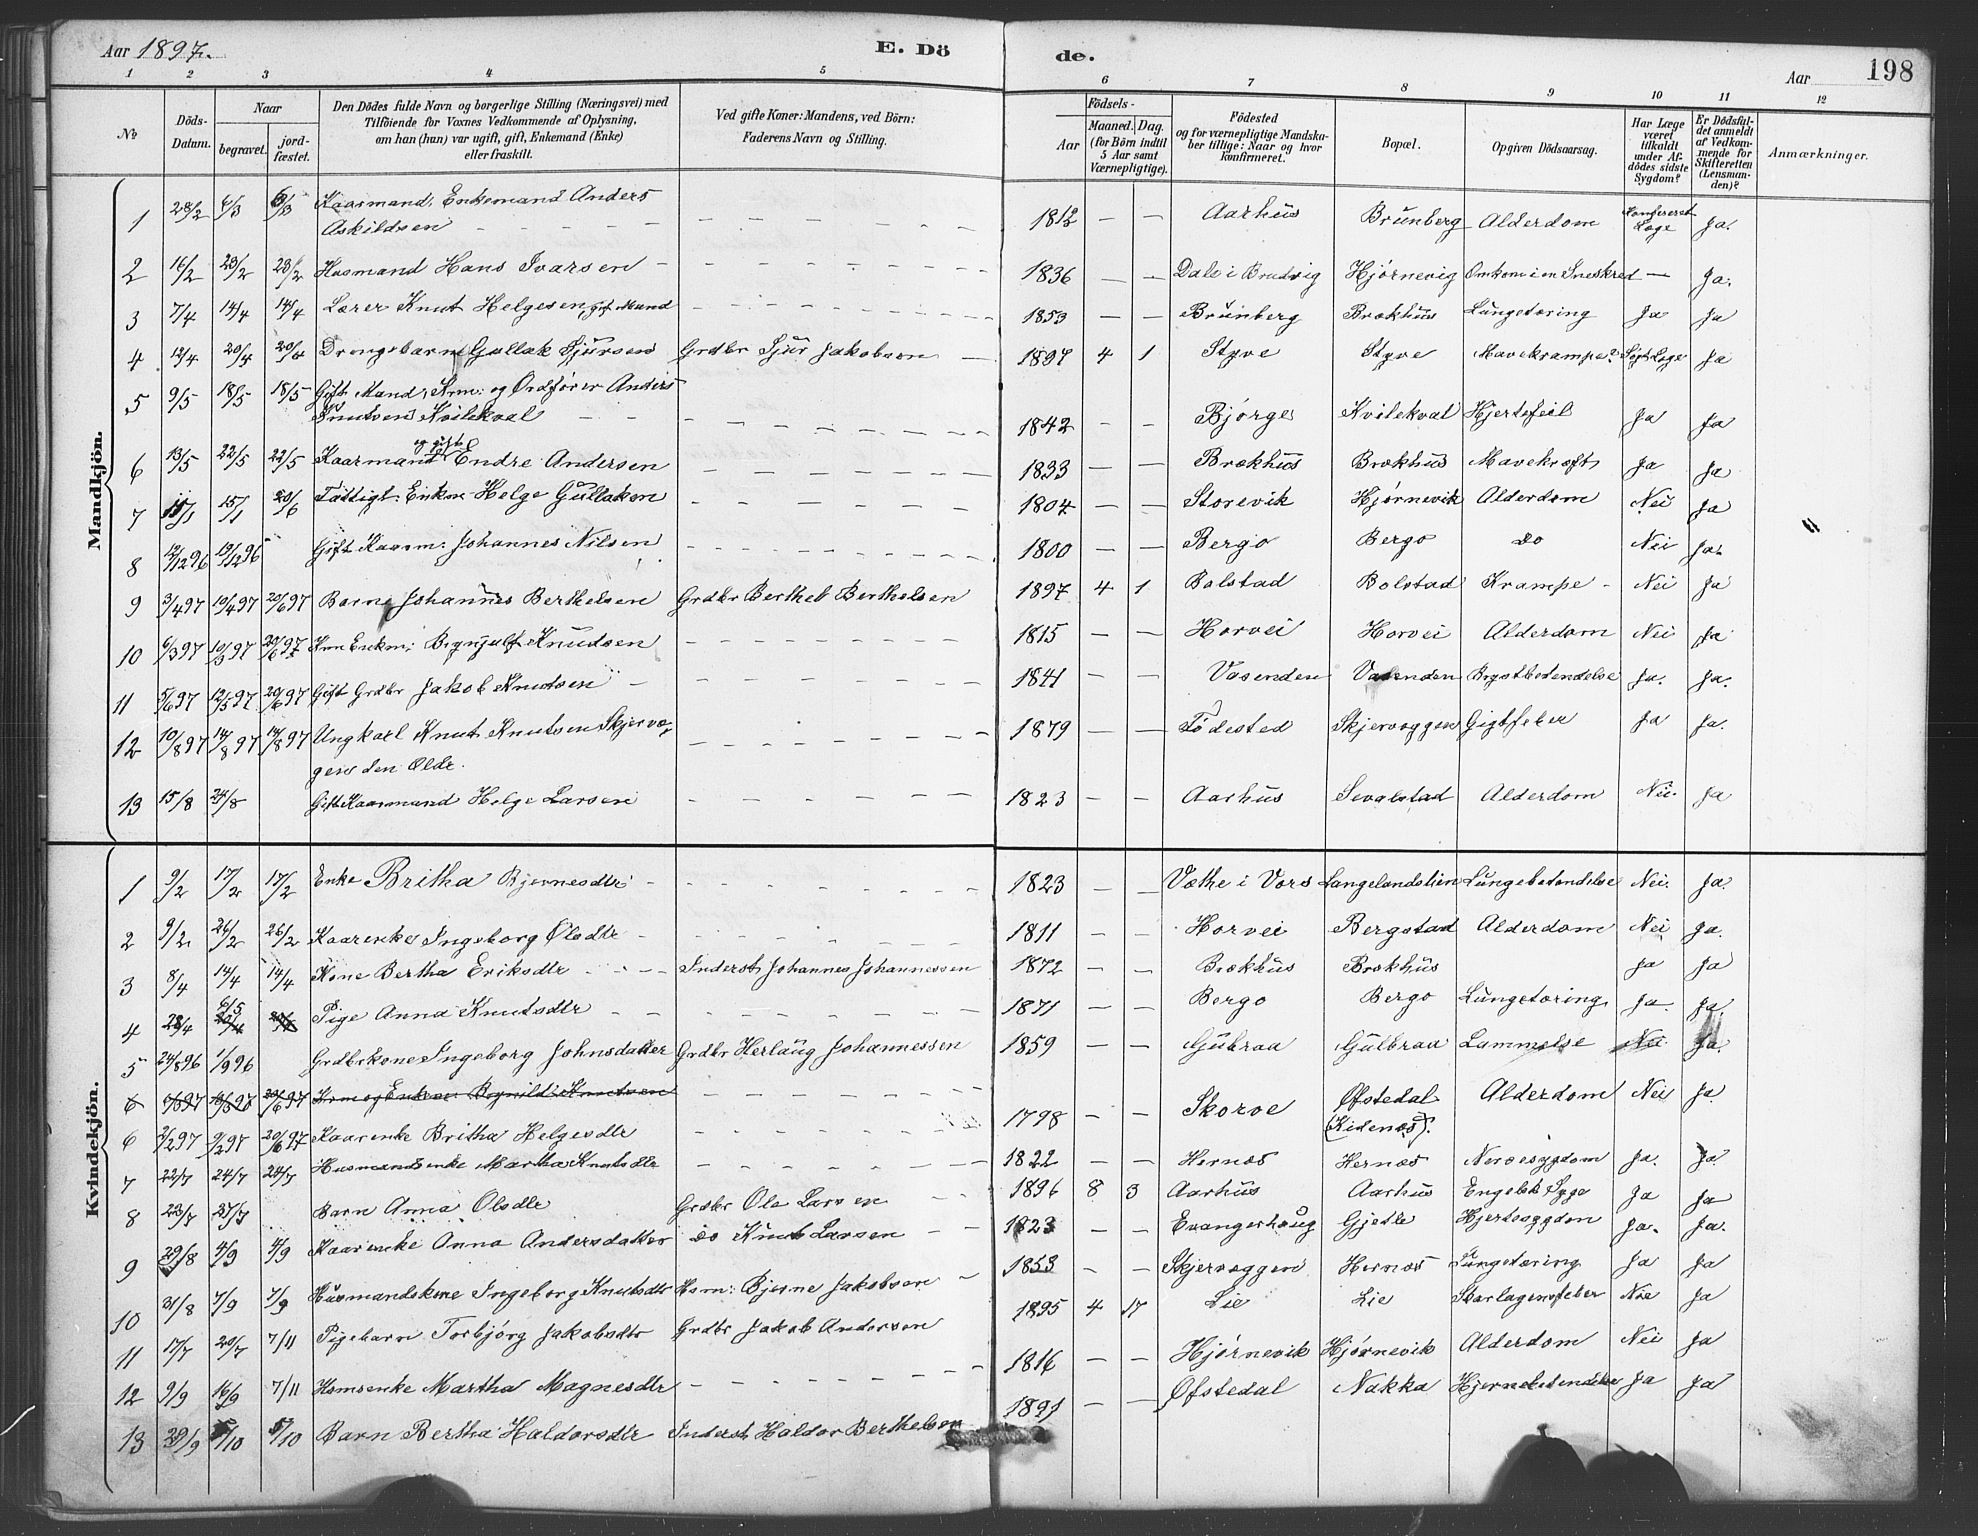 Aar 1897.
E. Dö
de.
Aar
198
1 2 3 4 5 6 7 8 9 10 11 12
No
Döds-Datum.
Naar
begravet.
jordfæstet.
Den Dödes fulde Navn og borgerlige Stilling (Næringsvei) med
Tilföiende for Voxnes Vedkommende af Oplysning,
om han (hun) var ugift, gift, Enkemand (Enke)
eller fraskilt.
Ved gifte Koner: Mandens, ved Börn:
Faderens Navn og Stilling.
Födsels-
Aar
Maaned. Dag.
(for Börn indtil
5 Aar samt
Værnepligtige).
Födested
og for værnepligtige Mandska-
ber tillige: Naar og hvor
konfirmeret.
Bopæl.
Opgiven Dödsaarsag.
Har Læge
været
tilkaldt
under Af-
dödes sidste
Sygdom?
Er Dödsfal-
det anmeldt
af Vedkom-
mende for
Skifteretten
(Lensman-
den)?
Anmærkninger.
Mandkjön.
1 28/2 6/3 6/3 Kaarmand, Enkemand Anders
Askildsen 1812 — — Aarhus Brunberg Alderdom Konfereret Læge Ja.
2 16/2 23/2 23/2 Husmand Hans Ivarsen 1836 — — Dale i Brudvig Hjørnevig Omkom i en Sneskred — Ja.
3 7/4 14/4 14/4 Lærer Knut Helgesen, gift Mand 1853 — — Brunberg Brækhus Lungetæring Ja Ja
4 12/4 20/4 20/4 Drengebarn Gullak Sjursen Grdbr Sjur Jakobsen 1897 4 1 Styve Styve Mavekrampe? Søgt Læge Ja
5 9/5 18/5 18/5 Gift Mand, Krm: og Ordfører Anders
Knutsen Kvilekval 1842 — — Bjørge Kvilekval Hjertefeil Ja Ja
6 13/5 22/5 22/5 Kaarmand og gift Endre Andersen 1833 — — Brækhus Brækhus Mavekræft Ja Ja
7 11/1 15/1 20/6 Fattigt. Enkm Helge Gullaksen 1804 — — Storevik Hjørnevik Alderdom Nei Ja
8 12/12 96 19/12 96 Gift Kaarm: Johannes Nilsen 1800 — — Bergo Bergo do Nei Ja.
9 3/4 97 19/4 97 20/6 97 Barn Johannes Berthelsen Grdbr Berthel Berthelsen 1897 4 1 Bolstad Bolstad Krampe Nei Ja
10 6/3 97 10/3 97 20/6 97 Krm Enkm: Brynjulf Knudsen 1815 — — Horvei Horvei Alderdom Nei Ja
11 5/6 97 12/5 97 20/6 97 Gift Grdbr Jakob Knutsen 1841 — — Vasenden Vasenden Brystbetendelse Ja. Ja.
12 10/8 97 14/8 97 14/8 97 Ungkarl Knut Knutsen Skjervæg-
gen den Eldr. 1879 — — Fødested Skjervæggen Gigtfeber Ja Ja.
13 15/8 24/8 Gift Kaarmand Helge Larsen 1823 — — Aarhus Sevalstad Alderdom Nei. Ja
Kvindekjön.
1 9/2 17/2 17/2 Enke Britha Bjernesdtr 1823 — — Væthe i Vors Langelandstien Lungebetendelse Nei. Ja.
2 9/2 26/2 26/2 Kaarenke Ingeborg Olsdtr 1811 — — Horvei Bergstad Alderdom Nei Ja.
3 8/4 14/4 14/4 Kone Bertha Eriksdtr Inderst Johannes Johannessen 1872 — — Brækhus Brækhus Ja Ja
4 28/4 6/5 Pige Anna Knutsdtr 1871 — — Bergo Bergo Lungetæring Ja Ja.
5 24/8 96 1/9 96 Grdbrkone Ingeborg Johnsdatter Grdbr Herlaug Johannessen 1859 — — Gulbraa Gulbraa Lammelse Nei Ja.
6 6/3 97 10/3 97 20/6 97 Krm og Enkm: Brynild Knutsen
6 2/2 97 9/2 97 20/6 97 Kaarenke Britha Helgesdtr 1798 — — Skorve Øfstedal
(Kidenæs). Alderdom Nei Ja
7 22/7 24/7 24/7 Husmandsenke Martha Knutsdtr 1822 — — Hernæs Hernæs Nervesygdom Ja. Ja
8 23/7 27/7 Barn Anna Olsdtr Grdbr Ole Larsen 1896 8 3 Aarhus Aarhus Engelsk Syge Ja Ja
9 29/8 4/9 4/9 Kaarenke Anna Andersdatter do Knut Larsen 1823 — — Evangerhaug Gjetle Hjertesygdom Ja. Ja.
10 31/8 7/9 7/9 Husmandskone Ingeborg Knutsdtr Hsm: Bjerne Jakobsen 1853 — — Skjervæggen Hernæs Lungetæring Ja Ja
11 17/7 20/7 7/11 Pigebarn Torbjørg Jakobsdtr Grdbr Jakob Andersen 1895 4 17 Lie Lie Skarlagensfeber Nei Ja
12 9/9 16/9 7/11 Hsmsenke Martha Magnesdtr 1816 — — Hjørnevik Hjørnevik Alderdom Nei Ja
13 29/9 5/10 5/10 Barn Bertha Haldorsdtr Inderst Haldor Berthelsen 1891 — — Øfstedal Nakka Hjernebetendelse Ja Ja